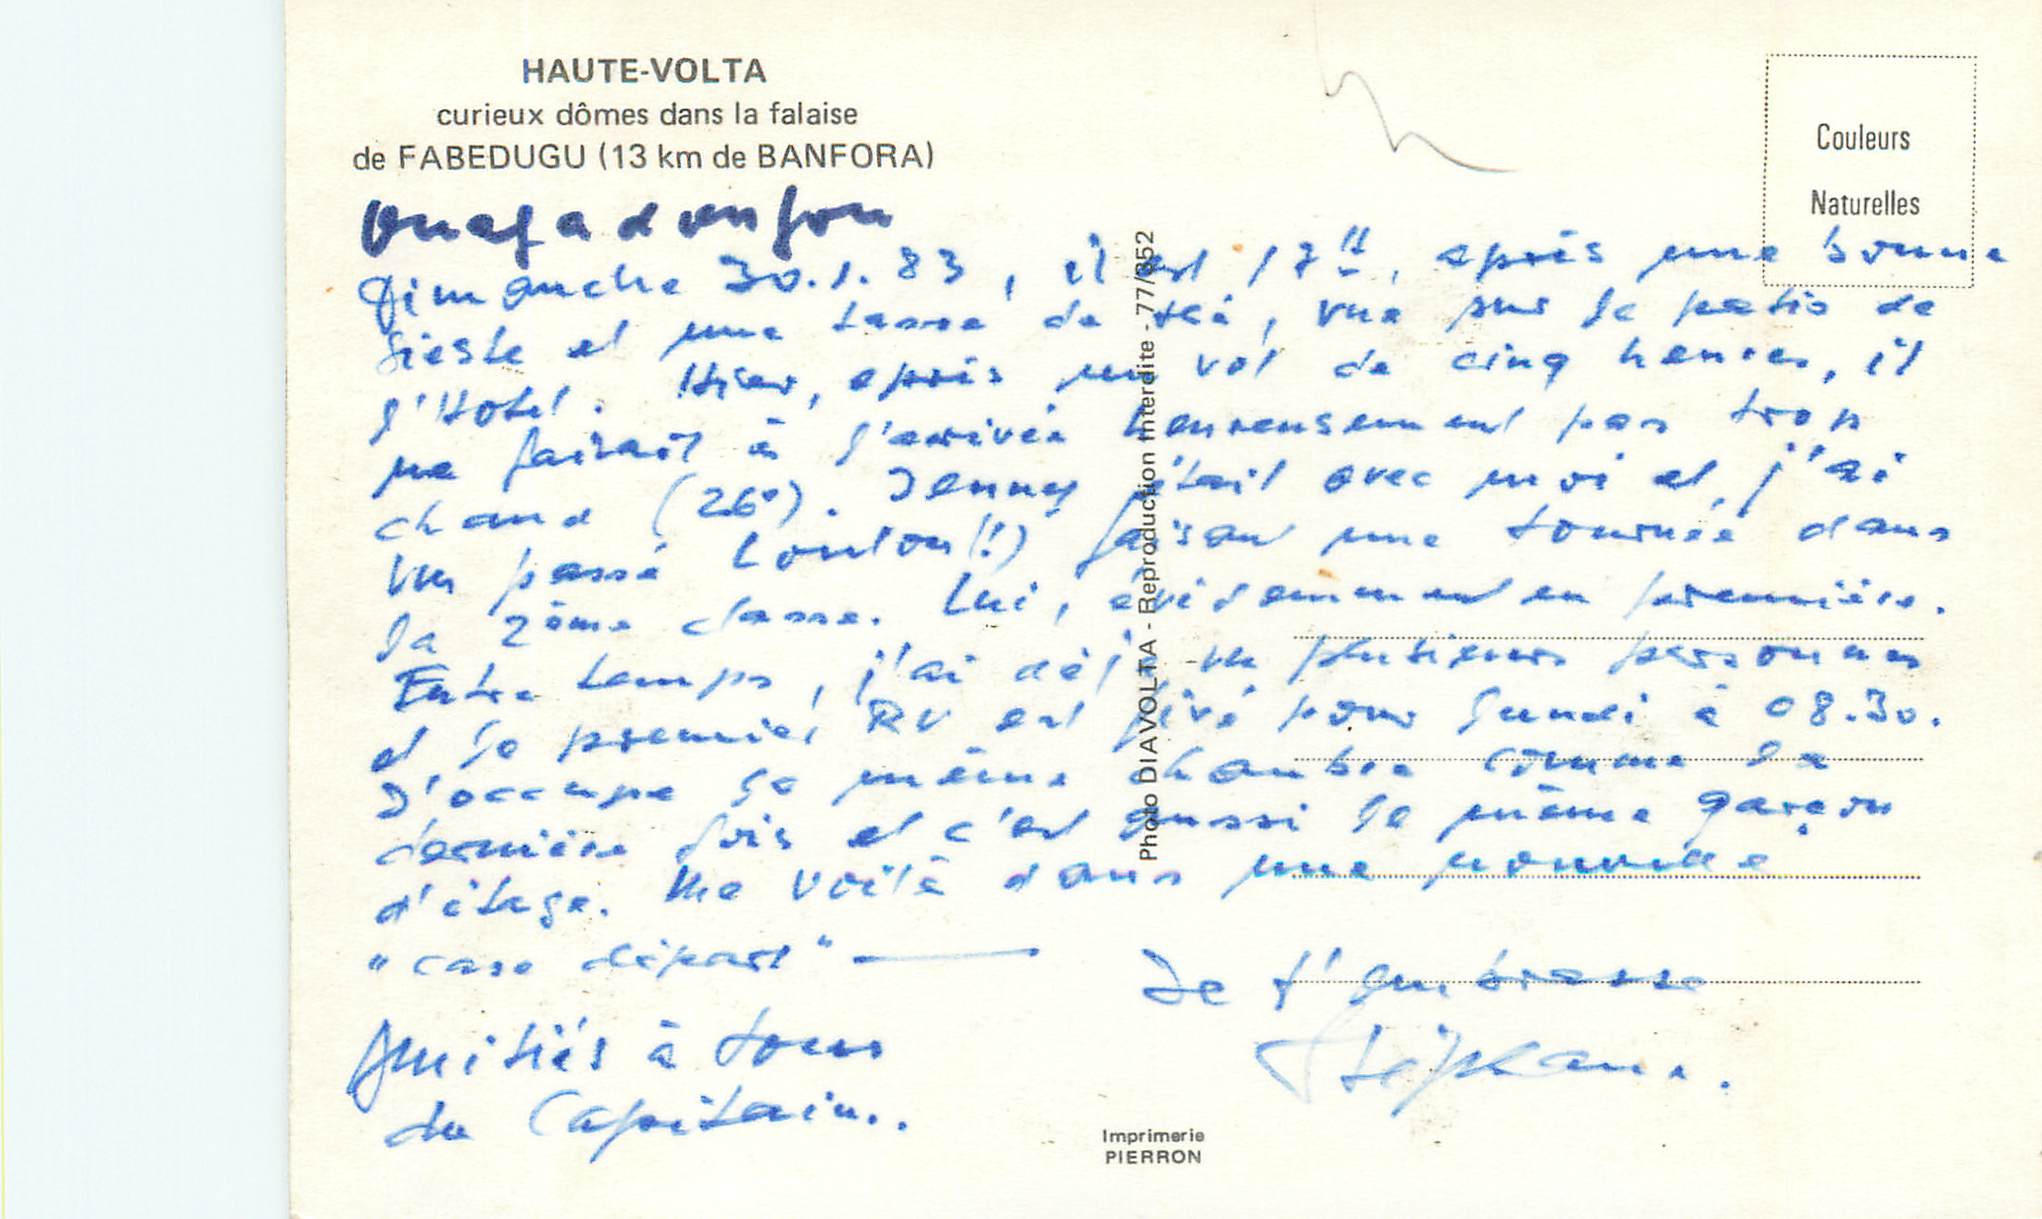 HAUTE-VOLTA
curieux dômes dans la falaise
de FABEDUGU (13 km de BANFORA)
Couleurs
Naturelles
Ouagadougou
Dimanche 30.1.83, il est 17H, après une bonne
sieste et une tasse de thé, vue sur le patio de
l'Hotel. Hier, après un vol de cinq heures, il
ne faisait à l'arrivée heureusement pas trop
chaud (26°). Jenny était avec moi et, j'ai
vu passé Loulou(!) faisant une tournée dans
la 2ème classe. Lui, évidemment en première.
Entre temps, j'ai déjà vu plusieurs personnes
et le premier RV est fixé pour lundi à 08.30.
J'occupe la même chambre comme la
dernière fois et c'est aussi le même garçon
d'étage. Me voilà dans une nouvelle
"case départ"—
Je t'embrasse
Stéphane.
Amitiés à tous
du Capitaine.
Photo DIAVOLTA - Reproduction Interdite - 77/852
Imprimerie
PIERRON